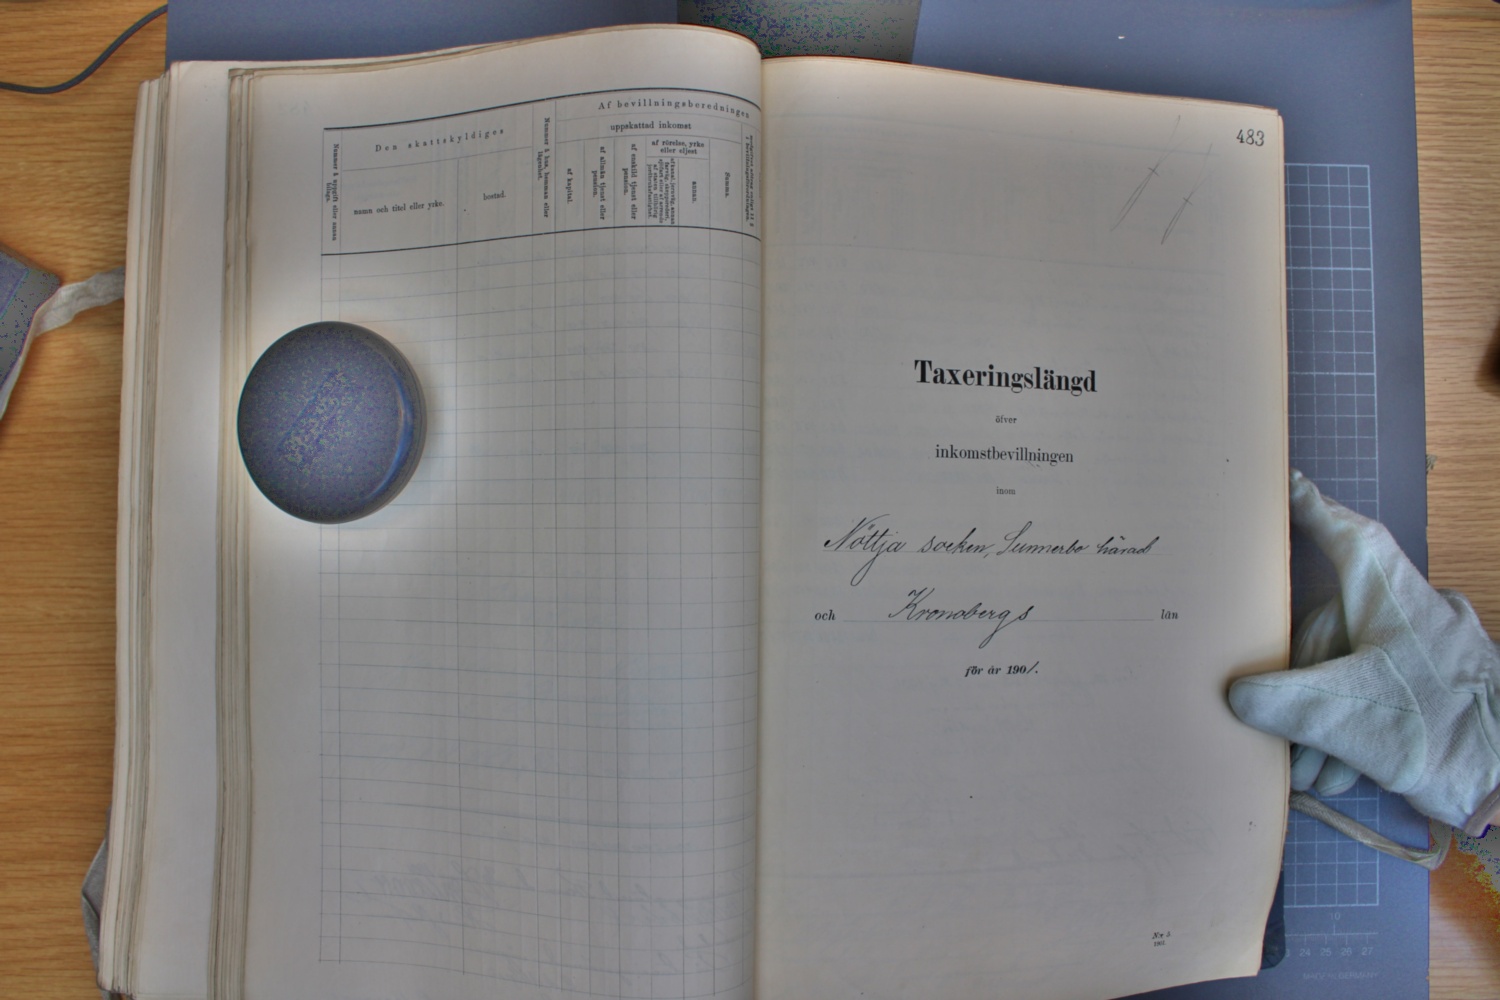 Nummer å uppgift eller annan bilaga.
Den skattskyldiges
namn och titel eller yrke.
bostad.
Nummer å hus, hemman eller lägenhet.
Af bevillningsberedningen
uppskattad inkomst
af kapital.
af allmän tjenst eller pension.
af enskild tjenst eller pension.
af rörelse, yrke eller eljest
annan.
Summa.
483
Taxeringslängd
öfver
inkomstbevillningen
inom
Nöttja socken, Sunnerbo härad
och Kronobergs län
för år 1901.
N:r 5.
1901
10
24 25 26 27
MADE IN GERMANY